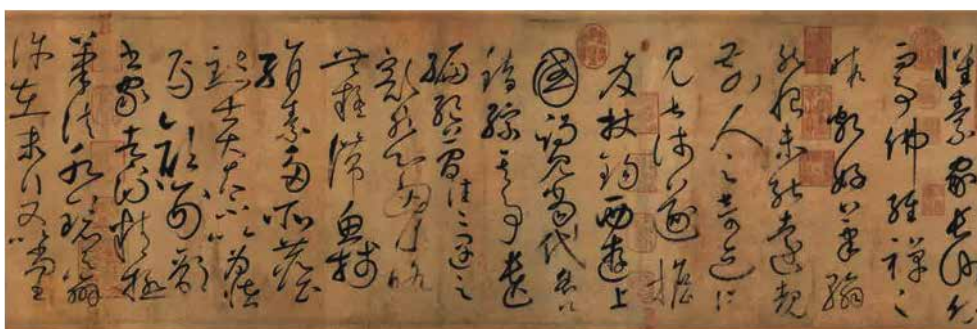 懷素家長沙幼而
事佛經禪之
暇頗好筆翰
然恨未能遠覩
前人之奇迹所
見甚淺遂擔
笈杖錫西遊上
國謁見當代名公
錯綜其事遺
編絕簡往往遇之
豁然心胸略
無疑滯魚牋
絹素多所塵
點士大夫不以為怪
焉顏刑部
書家者流精極
筆法水鏡之辨
許在末行又以尚書